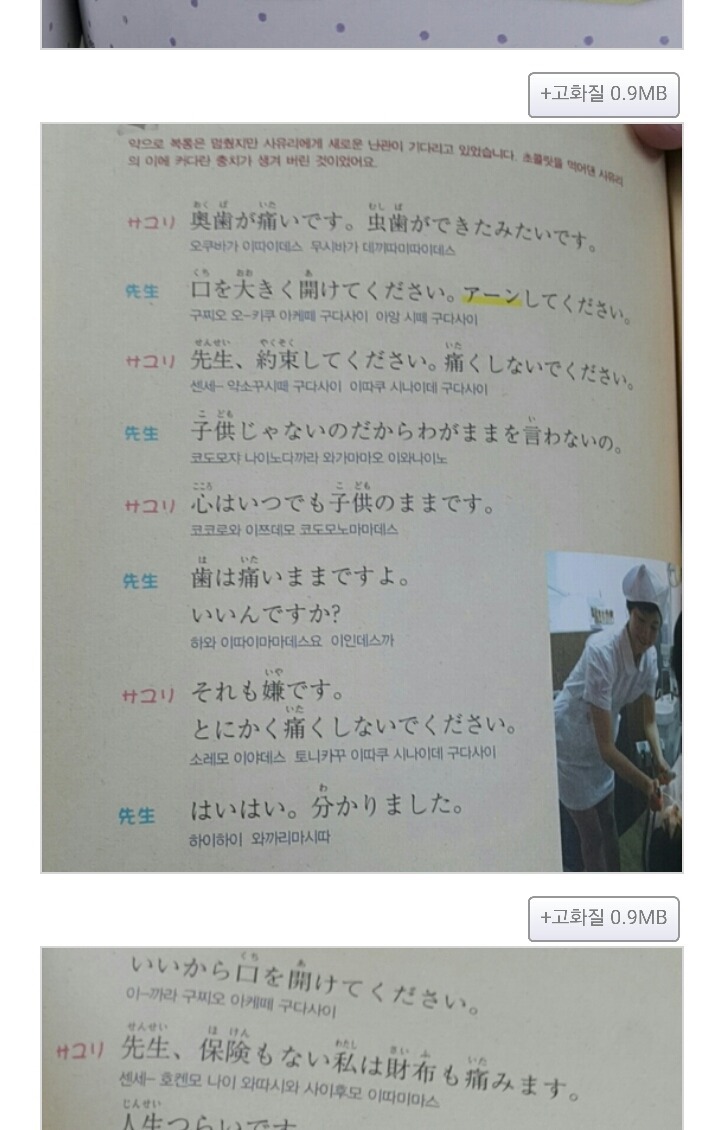 +고화질 0.9MB
약으로 복통은 멈췄지만 사유리에게 새로운 난관이 기다리고 있었습니다. 초콜릿을 먹어댄 사유리
의 이에 커다란 충치가 생겨 버린 것이었어요.
おく ば いた むし ば
サユリ 奥歯が痛いです。虫歯ができたみたいです。
오쿠바가 이따이데스 무시바가 데끼따미따이데스
くち おお あ
先生 口を大きく開けてください。アーンしてください。
구찌오 오-키쿠 아케떼 구다사이 아앙 시떼 구다사이
せんせい やくそく いた
サユリ 先生、約束してください。痛くしないでください。
센세- 약소꾸시떼 구다사이 이따쿠 시나이데 구다사이
こ ども い
先生 子供じゃないのだからわがままを言わないの。
코도모쟈 나이노다까라 와가마마오 이와나이노
こころ こ ども
サユリ 心はいつでも子供のままです。
코코로와 이쯔데모 코도모노마마데스
は いた
先生 歯は痛いままですよ。
いいんですか?
하와 이따이마마데스요 이인데스까
いや
サユリ それも嫌です。
いた
とにかく痛くしないでください。
소레모 이야데스 토니카꾸 이따쿠 시나이데 구다사이
わ
先生 はいはい。分かりました。
하이하이 와까리마시따
+고화질 0.9MB
くち あ
いいから口を開けてください。
이-까라 구찌오 아케떼 구다사이
せんせい ほ けん わたし さい ふ いた
サユリ 先生、保険もない私は財布も痛みます。
센세- 호켄모 나이 와따시와 사이후모 이따미마스
じんせい
人生つらいです